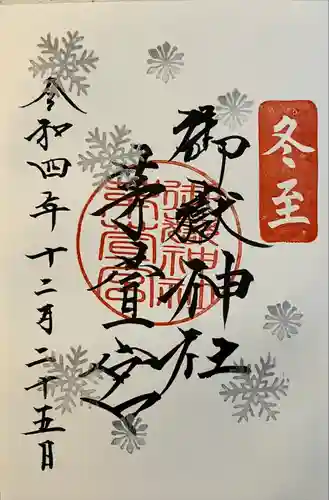 冬至
御嶽神社
茅萱宮
令和四年十二月二十五日